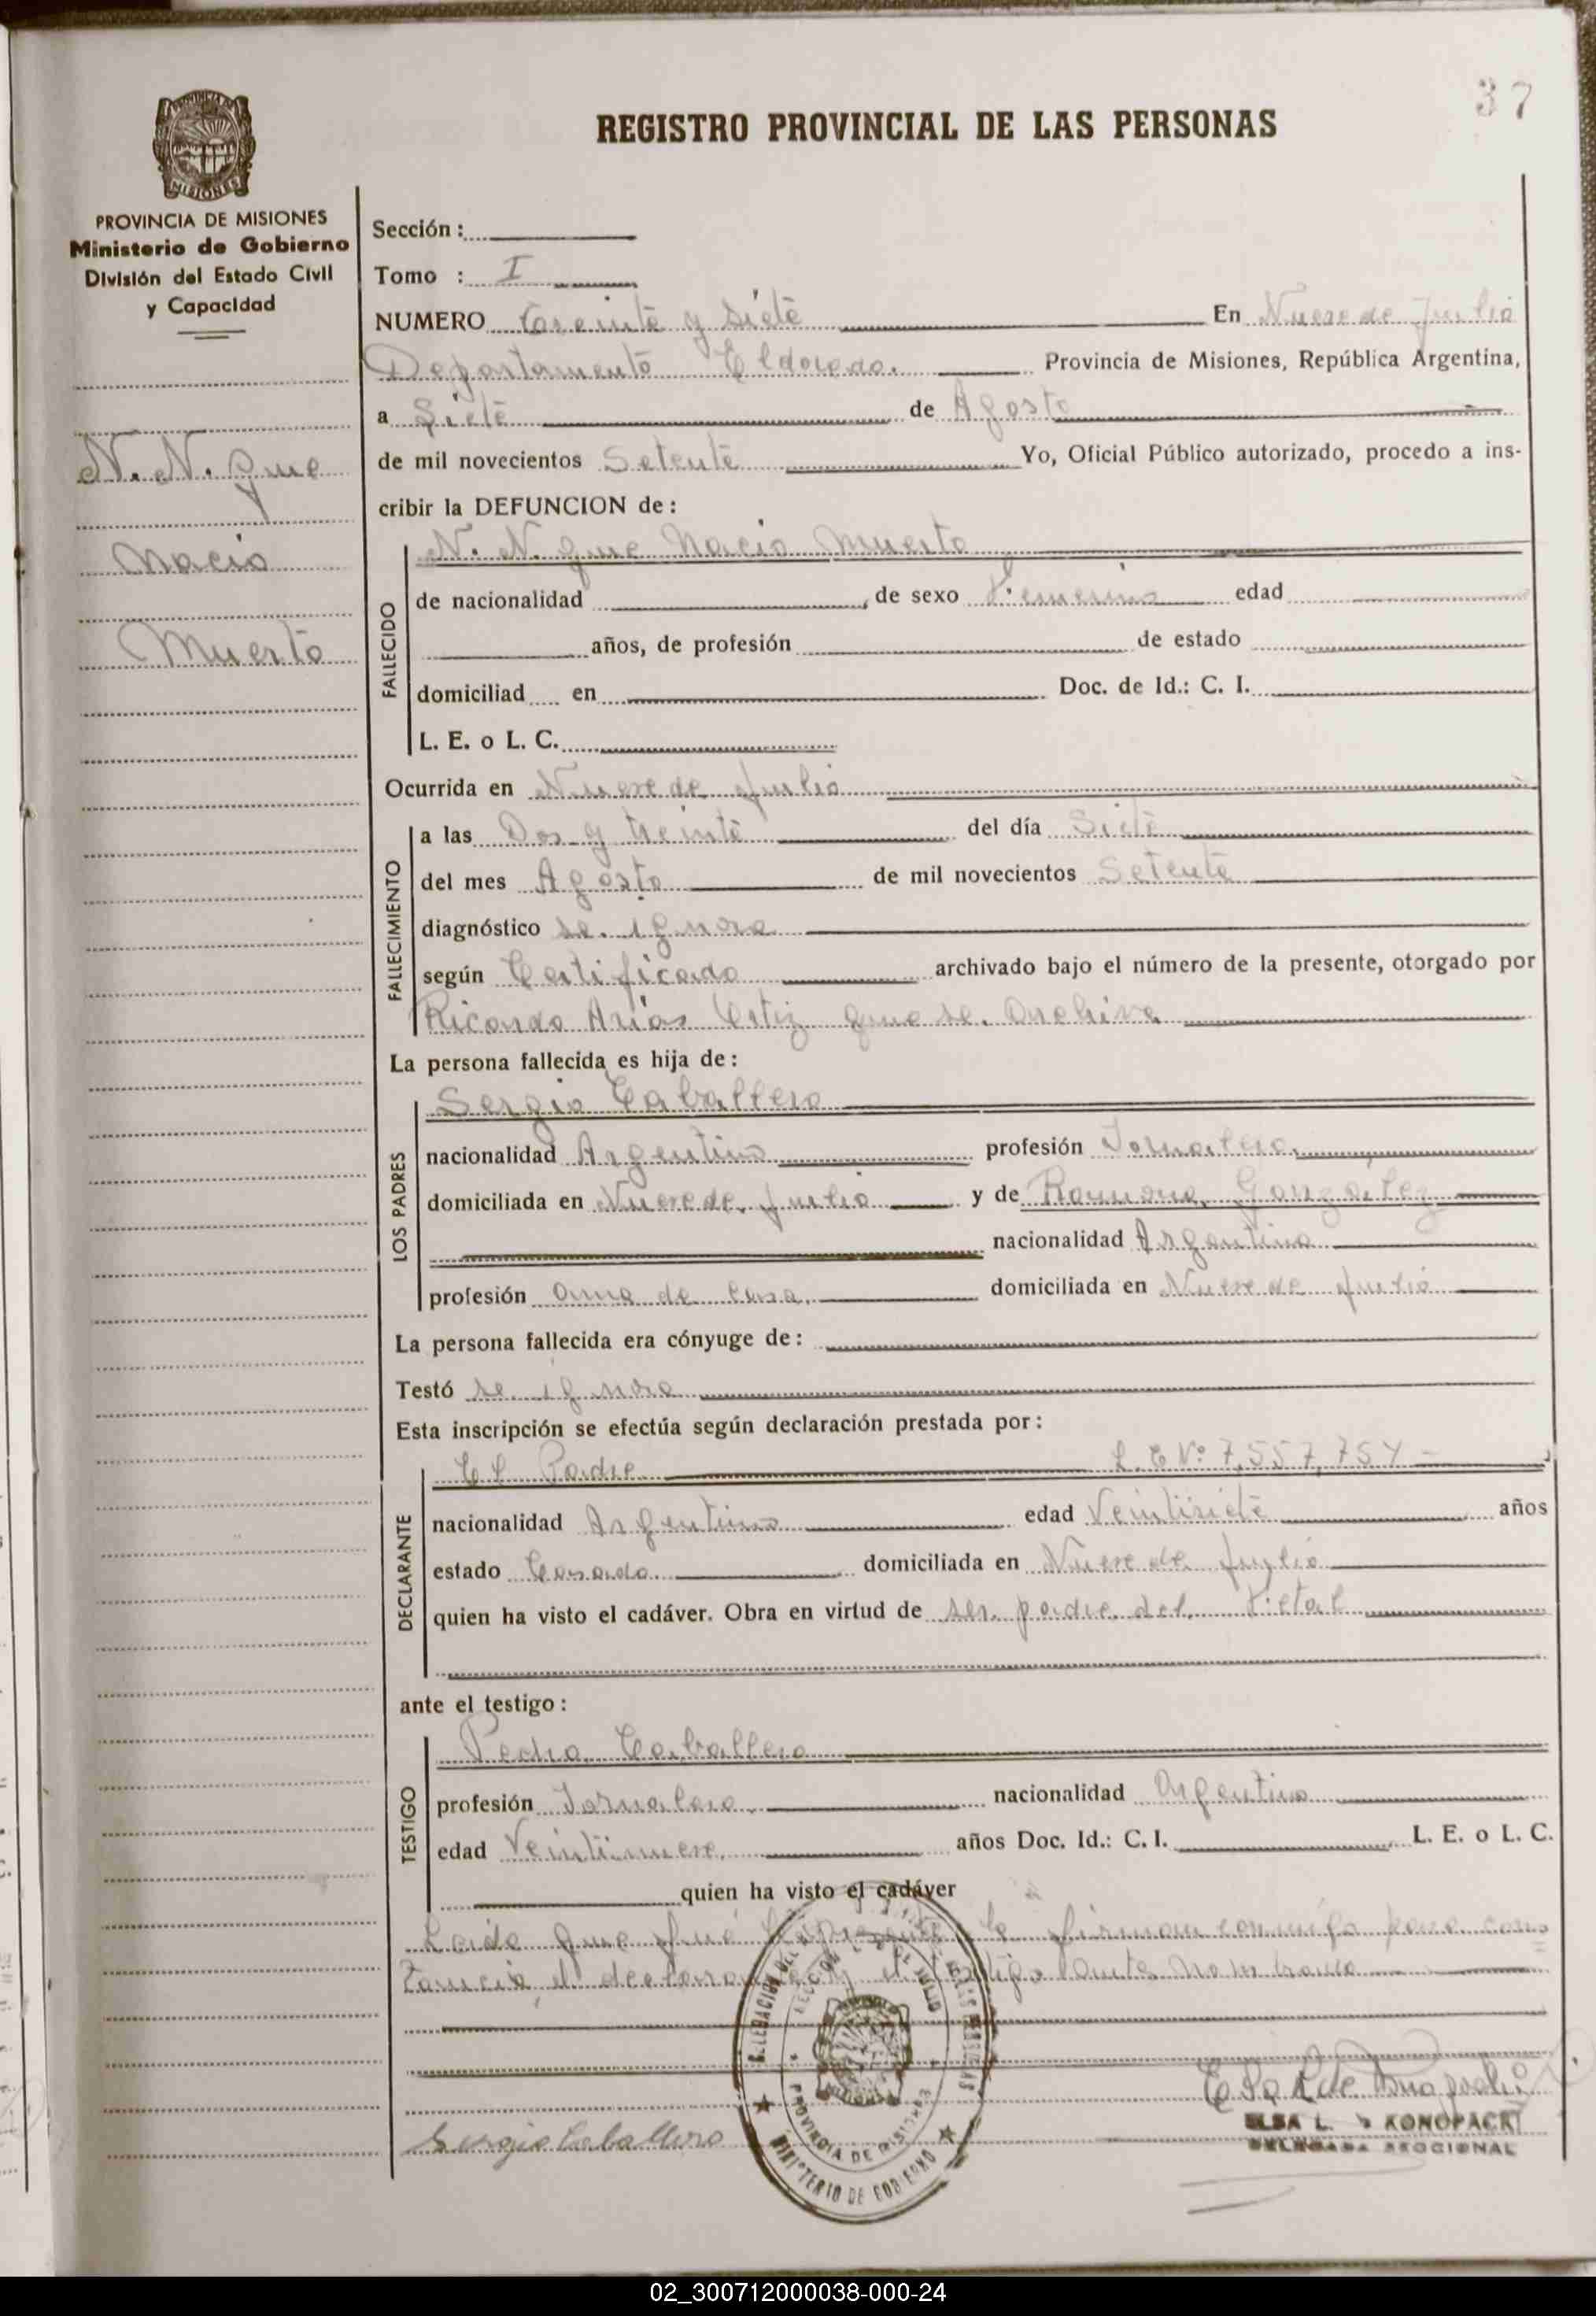 37
REGISTRO PROVINCIAL DE LAS PERSONAS
PROVINCIA DE MISIONES
Ministerio de Gobierno
División del Estado Civil
y Capacidad
N. N. que
Nacio
Muerto
Sección:
Tomo : I
NUMERO Treinta y siete En Nueve de Julio
Departamento Eldorado. Provincia de Misiones, República Argentina,
a Siete de Agosto
de mil novecientos Setenta Yo, Oficial Público autorizado, procedo a ins-
cribir la DEFUNCION de:
FALLECIDO
N. N. que Nacio Muerto
de nacionalidad , de sexo Femenino edad
años, de profesión de estado
domiciliad en Doc. de Id.: C. I.
L. E. o L. C.
Ocurrida en Nueve de Julio
FALLECIMIENTO
a las Dos y treinta del día Siete
del mes Agosto de mil novecientos Setenta
diagnóstico se ignora
según Certificado archivado bajo el número de la presente, otorgado por
Ricardo Arias Ortiz que se archiva
La persona fallecida es hija de:
LOS PADRES
Sergio Caballero
nacionalidad Argentino profesión Jornalero
domiciliada en Nueve de Julio y de Ramona Gonzalez
nacionalidad Argentina
profesión ama de casa domiciliada en Nueve de Julio
La persona fallecida era cónyuge de:
Testó se ignora
Esta inscripción se efectúa según declaración prestada por:
DECLARANTE
El Padre L. E Nº 7,557,754
nacionalidad Argentino edad Veintisiete años
estado Casado domiciliada en Nueve de Julio
quien ha visto el cadáver. Obra en virtud de ser padre del Fetal
ante el testigo:
TESTIGO
Pedro Caballero
profesión Jornalero nacionalidad Argentino
edad Veintinueve años Doc. Id.: C. I. L. E. o L. C.
quien ha visto el cadáver
Leida que fué la presente la firman conmigo para cons
tancia el declarante y el testigo ante nombrado
DELEGACION DEL
DE JULIO
PROVINCIA DE MISIONES
MINISTERIO DE GOBIERNO
Sergio Caballero
ELSA L. KONOPACKI
DELEGADA SECCIONAL
02_300712000038-000-24